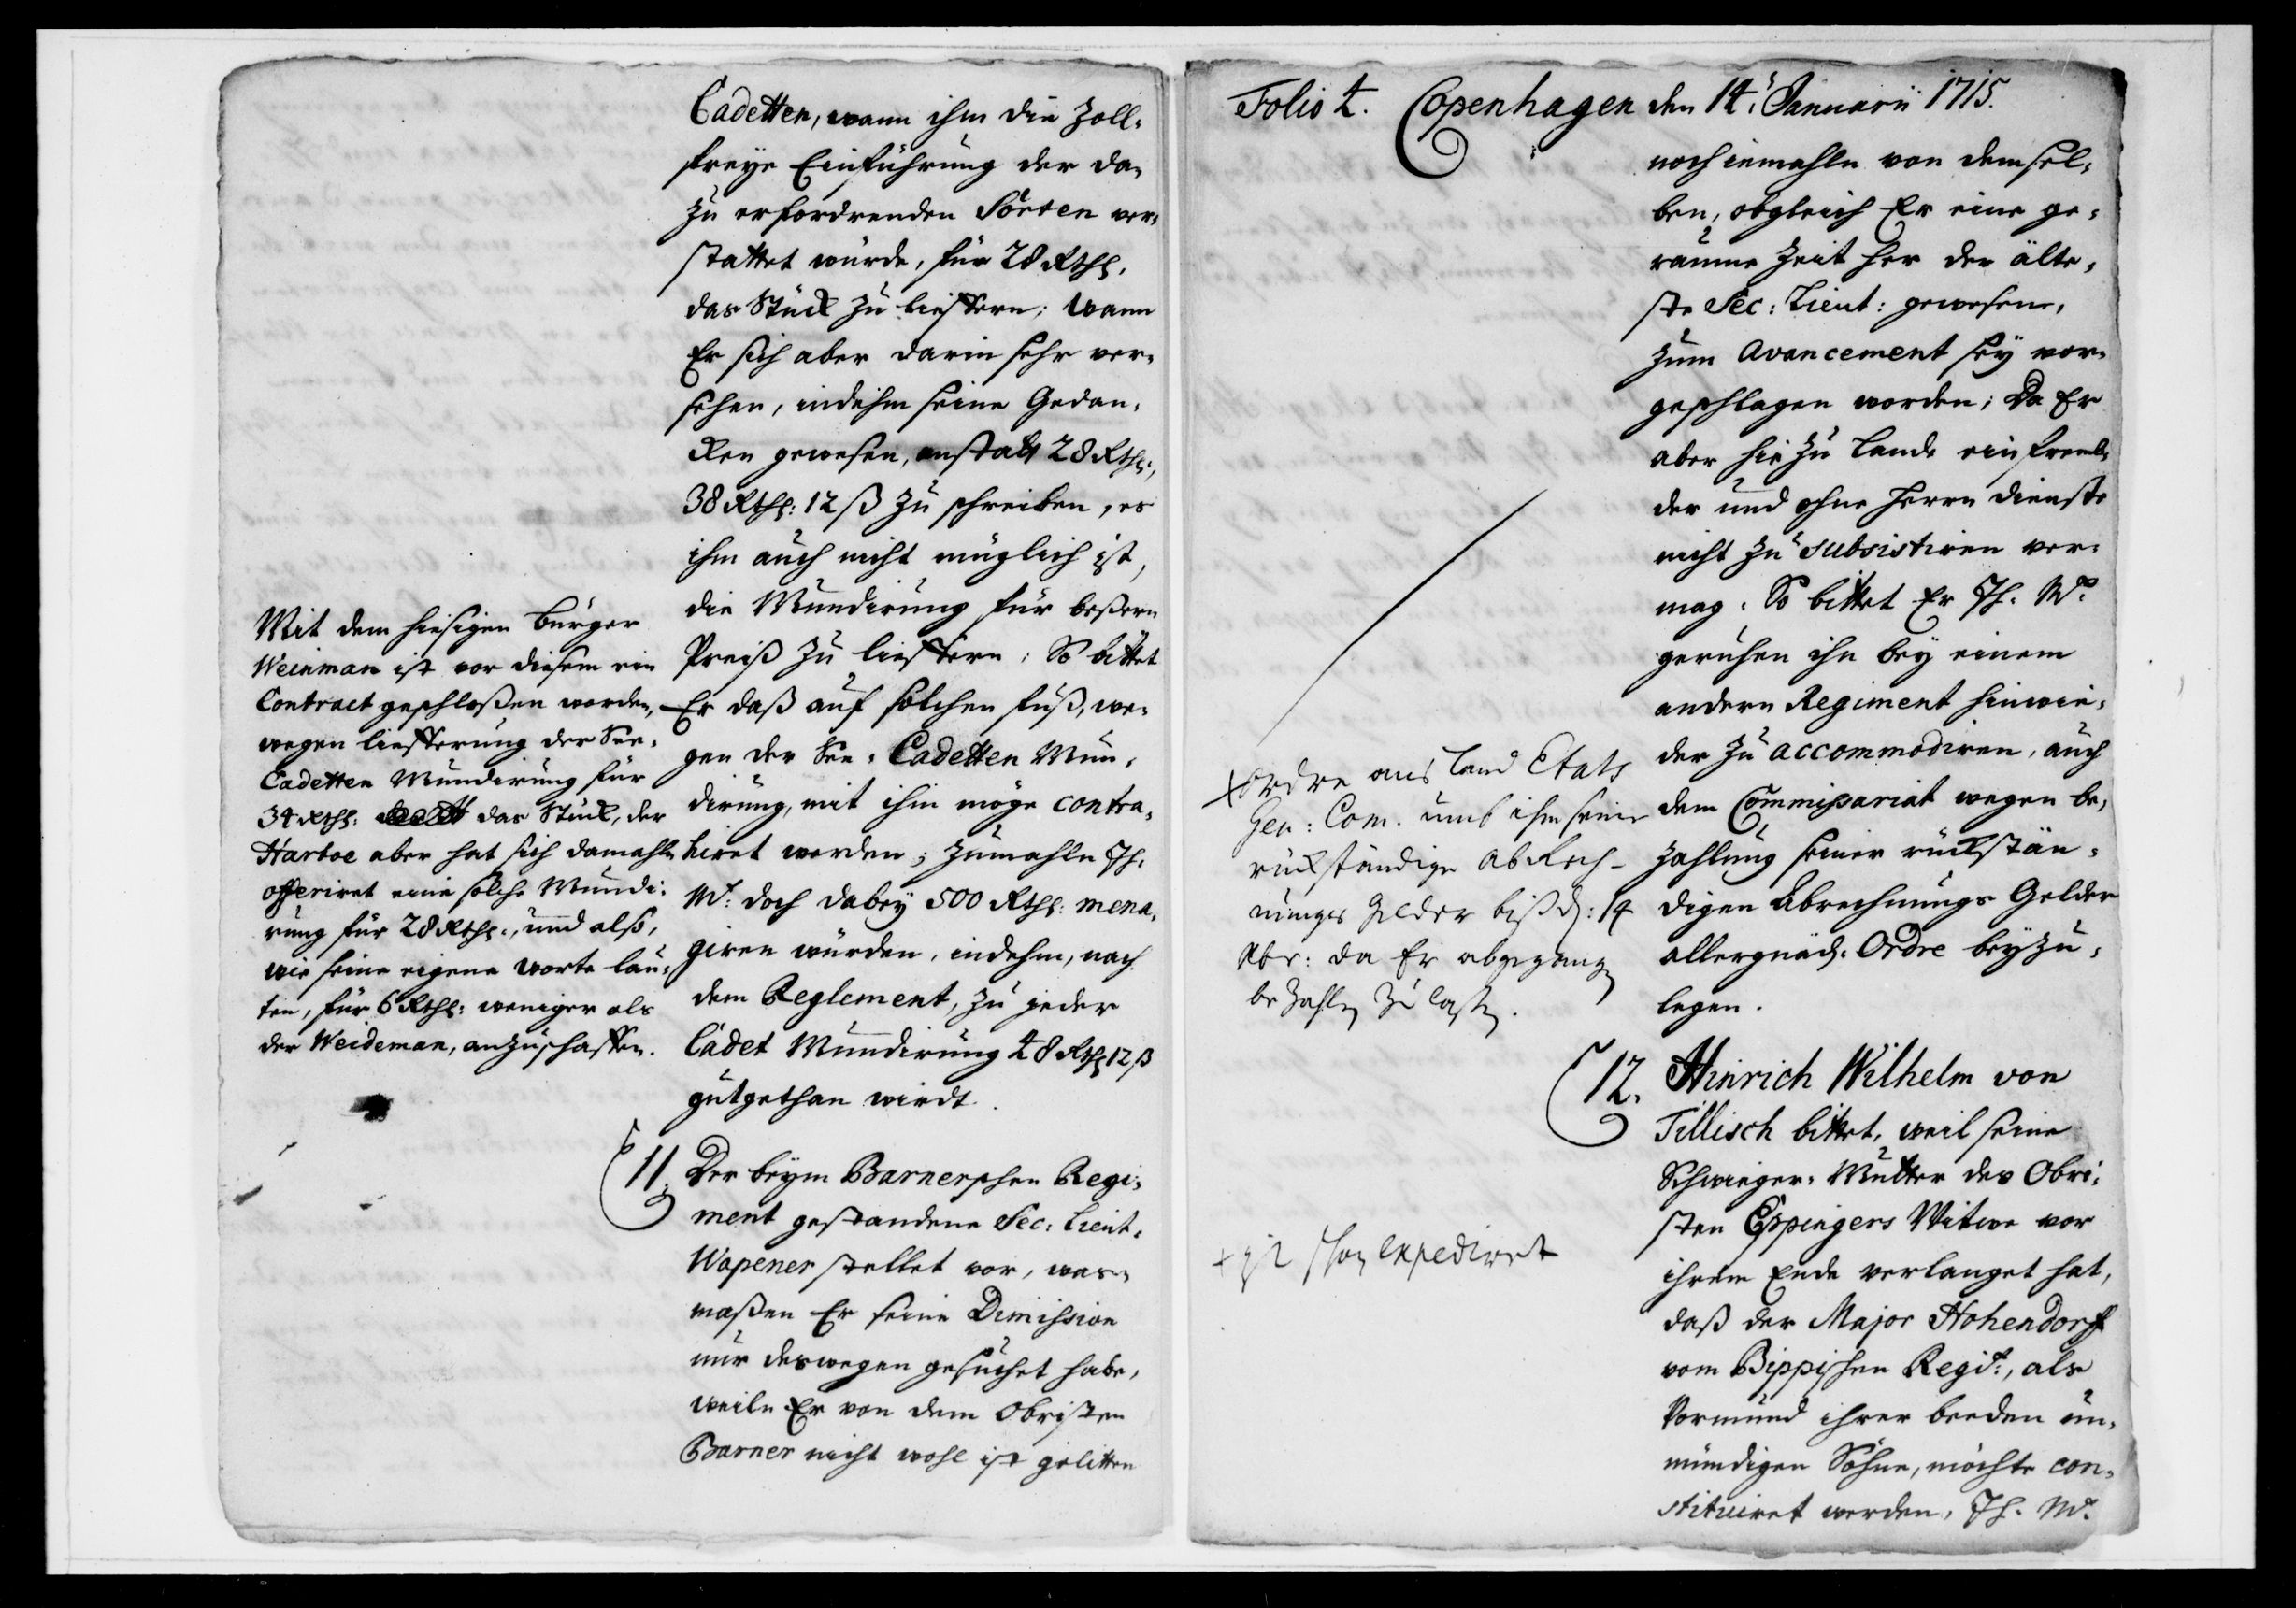 Cadetten, wann ihm die Zoll-
freye Einführung der da-
zu erfordrenden Sorten ver-
stattet würde, für 28 Rthl.
das Stück zu lieffern; Wann
Er sich aber darin sehr ver-
sehen, indehm seine Gedan-
ken gewesen, anstatt 28 Rthl.,
38 Rthl: 12 ß zu schreiben, es
ihm auch nicht müglich ist,
die Mundirung für beßern
Preiß zu lieffern; So bittet
Er daß auf solchen fuß, we-
gen der See-Cadetten Mun-
dirung, mit ihm möge contra-
hiret werden; Zumahln Ih.
M. doch dabey 500 Rthl: mena-
giren würden, indehm, nach
dem Reglement, zu jeder
Cadet Mundirung 48 Rthl 12 ß
gutgethan wirdt.
Mit dem hiesigen Bürger
Weinman ist vor diesem ein
Contract geschloßen worden,
wegen liefferung der See-
Cadetten Mundirung für
34 Rthl: das Stück, der
Hartoe aber hat sich damahln
offeriret eine solche Mundi-
rung für 28 Rthl., und also,
wie seine eigene worte lau-
ten, für 6 Rthl: weniger als
der Weideman, anzuschaffen.
11. Der beym Barnerschen Regi-
ment gestandene Sec: Lieut.
Wapener stellet vor, was-
maßen Er seine Dimission
nur deswegen gesuchet habe,
weiln Er von dem Obristen
Barner nicht wohl ist gelitten
Folio 4. Copenhagen den 14. Januarii 1715.
noch iemahln von demsel-
ben, obgleich Er eine ge-
raume Zeit her der älte-
ste Sec: Lieut: gewesen,
zum Avancement sey vor-
geschlagen worden; Da Er
aber hie zu Lande ein fremb-
der und ohne Herrn dienste
nicht zu subsistiren ver-
mag; So bittet Er Ih. M.
geruhen ihn bey einem
andern Regiment hinwie-
der zu accommodiren, auch
dem Commissariat wegen be-
zahlung seiner rückstän-
digen Abrechnungs Gelder
allergnäd. Ordre beyzu-
legen.
+ Ordre ans Land Etats
Gen: Com. umb ihm seine
rückständige Abrech-
nungs Gelder biß d: 14
Xbr: da Er abgegangen
bezahlen zu laßen.
12. Hinrich Wilhelm von
Tillisch bittet, weil seine
Schwieger-Mutter des Obri-
sten Eppingers Witwe vor
ihrem Ende verlanget hat,
daß der Major Hohendorff
vom Bippischen Regt:, als
Vormund ihrer beeden un-
mündigen Söhne, möchte con-
stituiret werden, Ih. M.
+ ist schon expediret